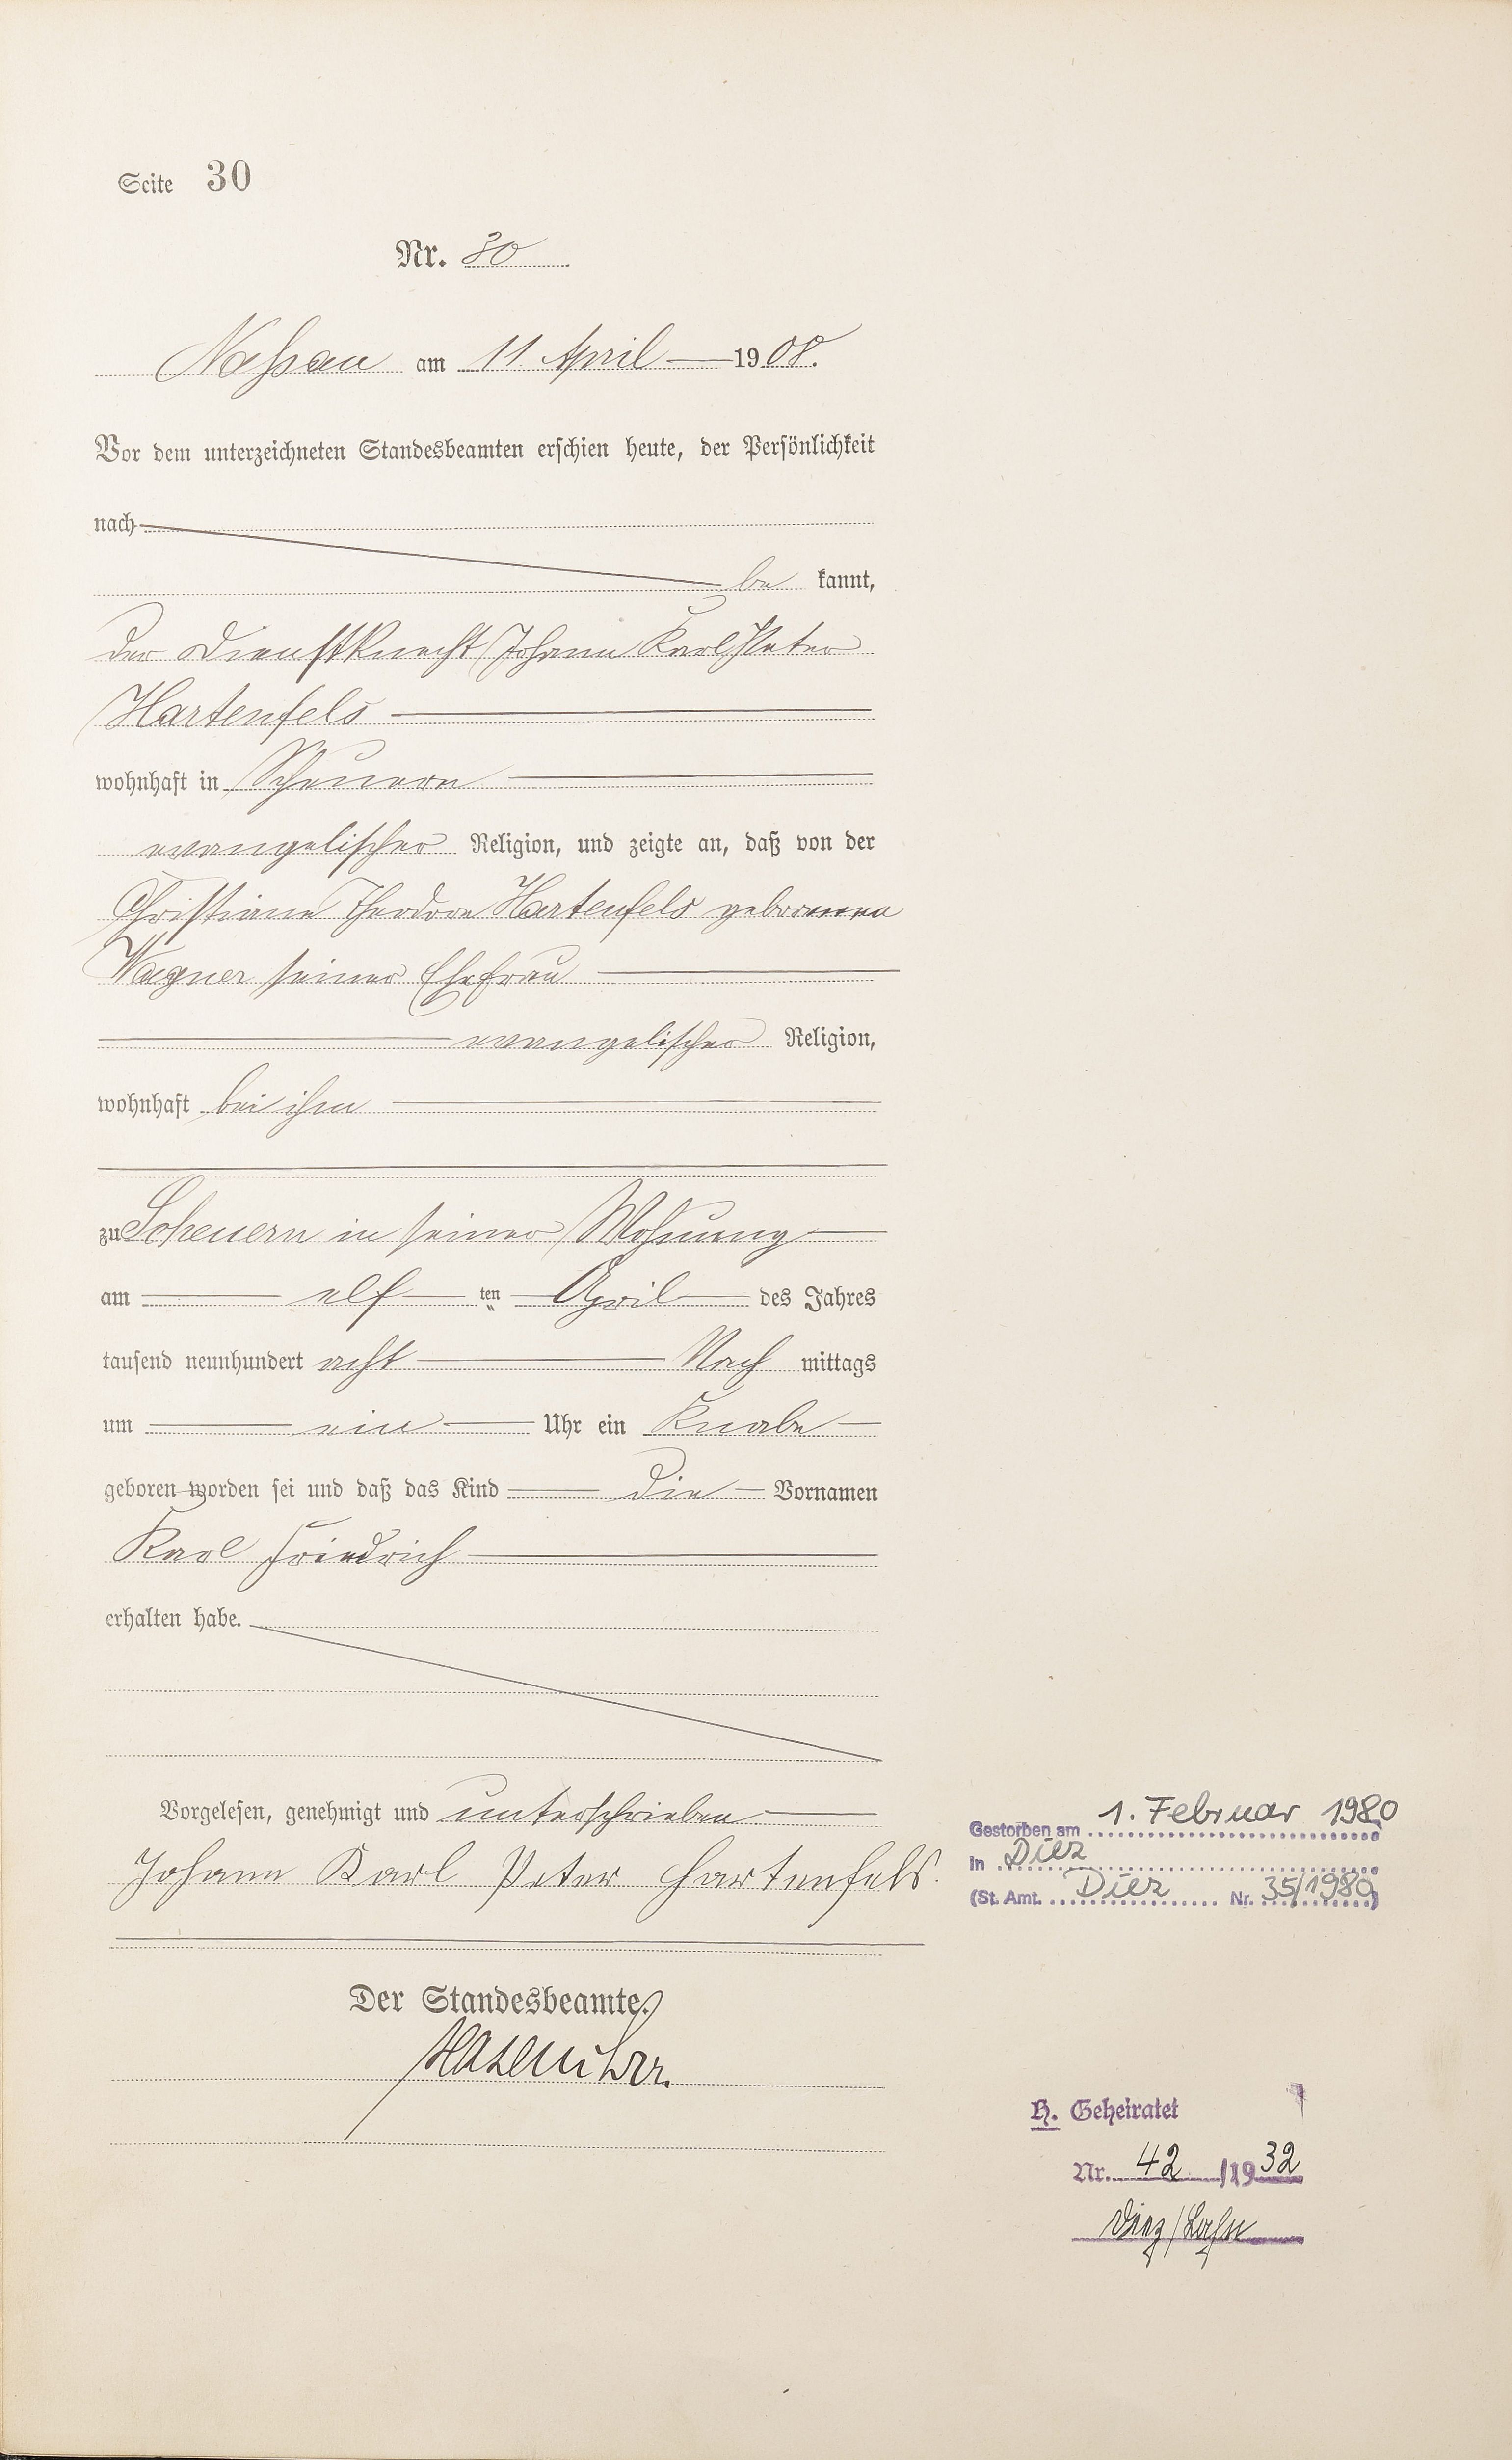 Seite 30
Nr. 30
Nassau am 11. April 1908.
Vor dem unterzeichneten Standesbeamten erschien heute, der Persönlichkeit
nach
be kannt,
der Dienstknecht Johann Karl Peter
Hartenfels
wohnhaft in Scheuern
evangelischer Religion, und zeigte an, daß von der
Christiane Theodore Hartenfels geborenen
Wagner seiner Ehefrau
evangelischer Religion,
wohnhaft bei ihm
zu Scheuern in seiner Wohnung
am elf ten April des Jahres
tausend neunhundert acht Nach mittags
um ein Uhr ein Knabe
geboren worden sei und daß das Kind die Vornamen
Karl Friedrich
erhalten habe.
Vorgelesen, genehmigt und unterschrieben
Johann Karl Peter Hartenfels.
Der Standesbeamte.
Gestorben am 1. Februar 1980
in Diez
(St. Amt. Diez Nr. 35/1980)
H. Geheiratet
Nr. 42 /1932
Diez/Lahn